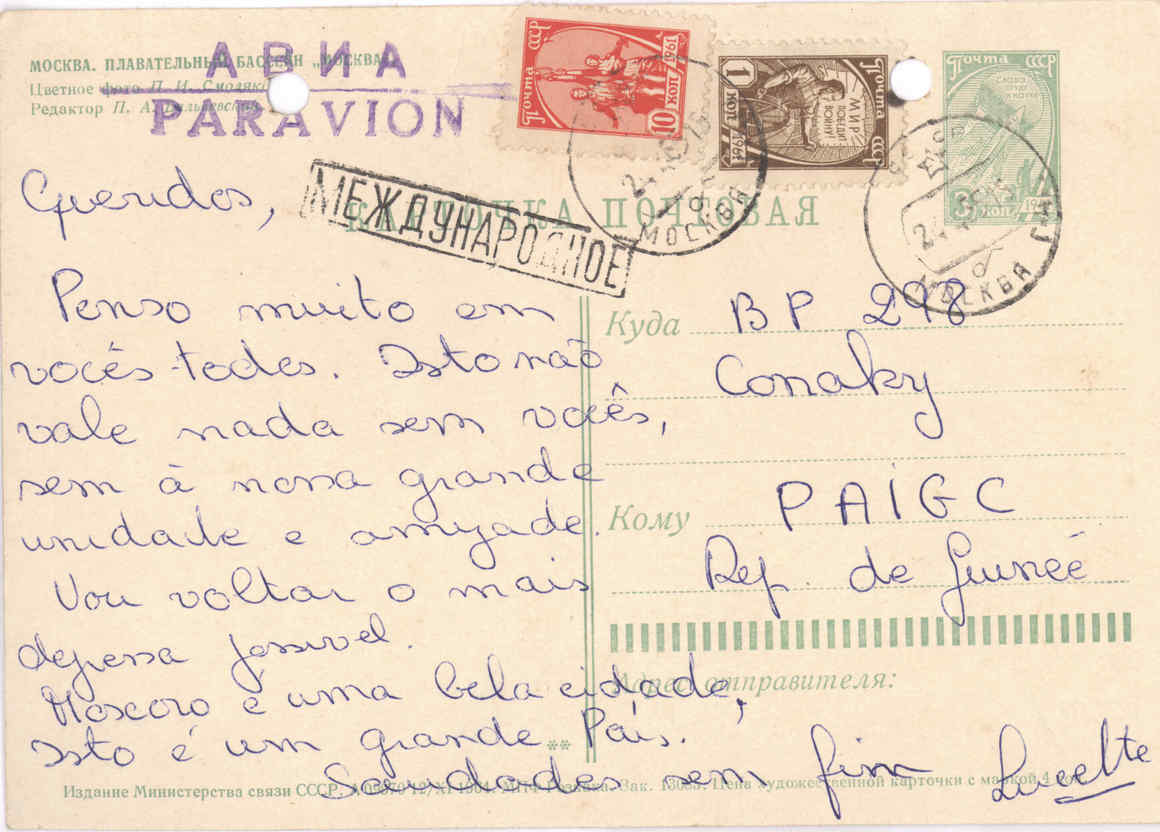 МОСКВА. ПЛАВАТЕЛЬНЫЙ БАССЕЙН „МОСКВА"
Цветное фото П. И. Смоляко
Редактор П. А.
АВИА
PAR AVION
ПОЧТА СССР
10 КОП
1961
1 КОП
1961
ПОЧТА СССР
МИР ПОБЕДИТ ВОЙНУ!
ПОЧТА
СЛАВА ТРУДУ И НАУКЕ
3 КОП
МОСКВА
МОСКВА
МЕЖДУНАРОДНОЕ
КАРТОЧКА ПОЧТОВАЯ
Queridos,
Penso muito em
vocês todes. Isto não
vale nada sem vocês,
sem à nossa grande
unidade e amizade.
Vou voltar o mais
depressa possivel.
Moscovo e uma bela cidade,
Isto é um grande País.
Saudades sem fim
Lucette
Куда BP 298
Conakry
Кому PAIGC
Rep. de Guineé
Адрес отправителя:
Издание Министерства связи СССР. 12/XI 1961. МПФ Гознака. Зак. 18085. Цена художественной карточки с маркой 4 коп.